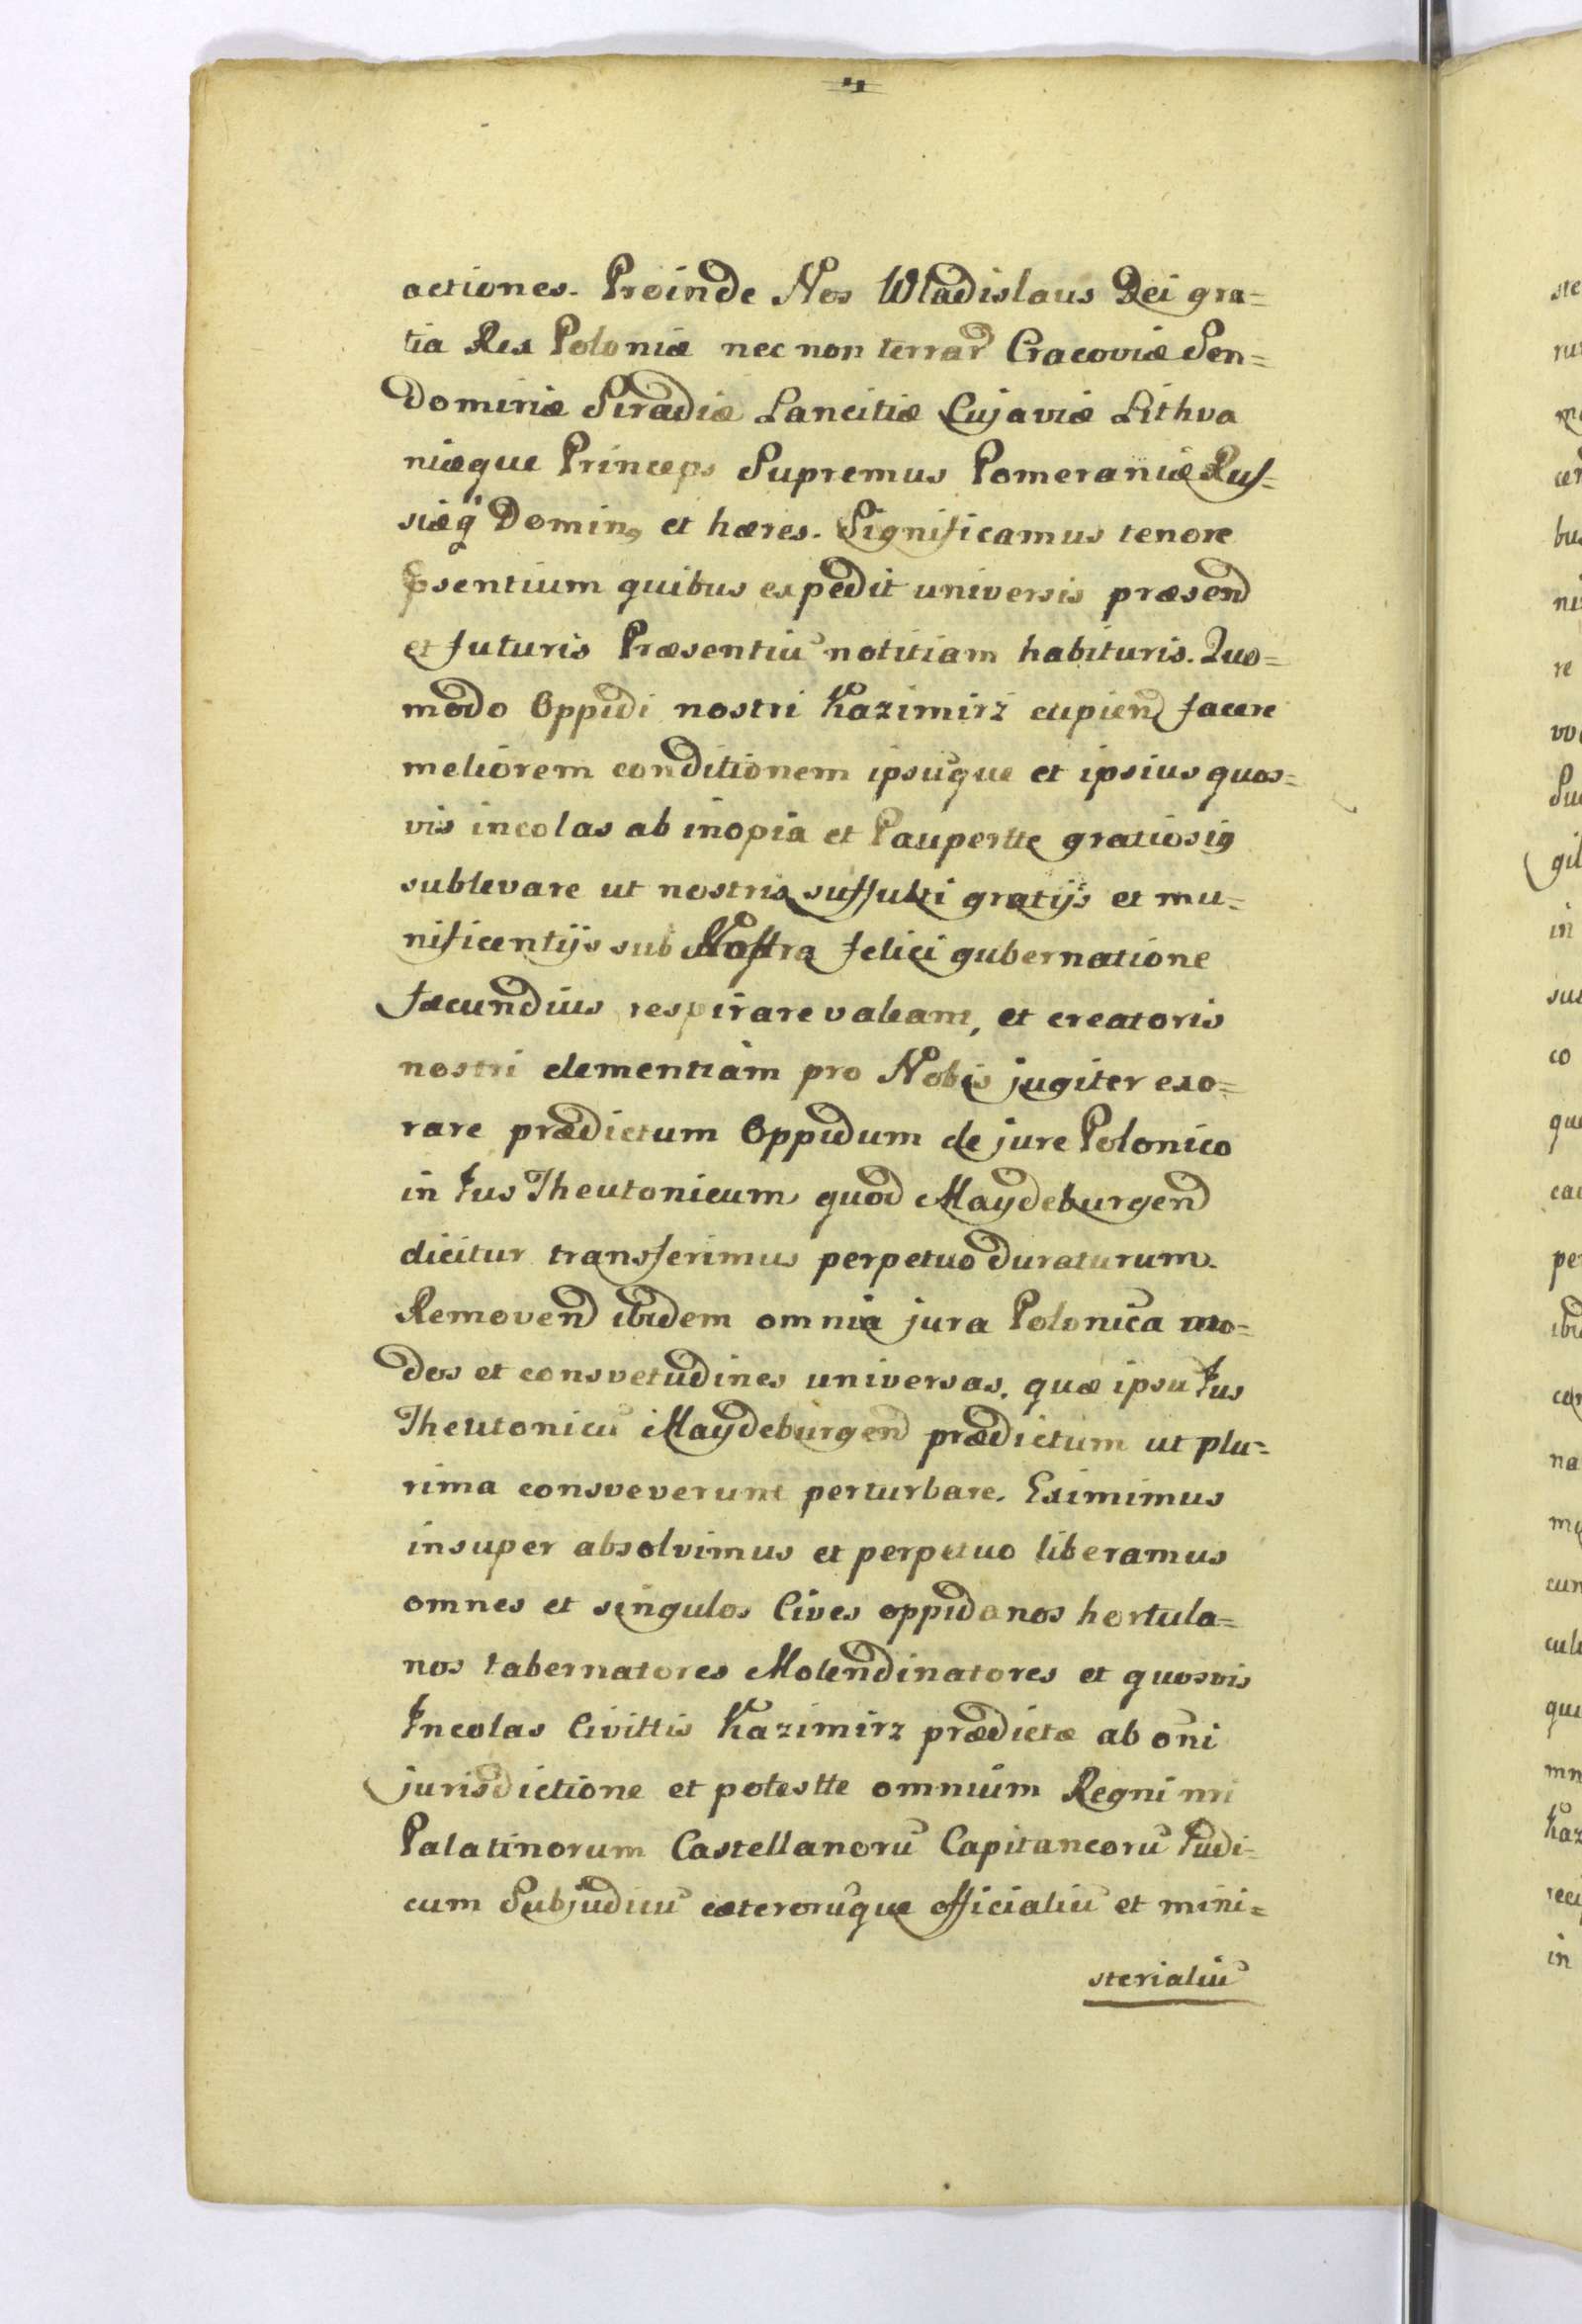 actiones. Proinde Nos Wladislaus Dei gra=
tia Rex Poloniæ nec non terrar Cracoviæ Sen=
domiriæ Siradiæ Lancitiæ Cujaviæ Lithva
niæque Princeps Supremus Pomeraniæ Rus=
siæq Domin9 et hæres. Significamus tenore
psentium quibus expedit universis præsend
et futuris Præsentiu notitiam habituris. Quo=
modo Oppidi nostri Kazimirz cupiend facere
meliorem conditionem ipsuque et ipsius quos=
vis incolas ab inopia et Paupertte gratiosi9
sublevare ut nostris suffulti gratijs et mu=
nificentijs sub Nostra felici gubernatione
fæcundius respirare valeant, et creatoris
nostri clementiam pro Nobis jugiter exo=
rare prædictum Oppidum de jure Polonico
in Jus Theutonicum quod Maydeburgend
dicitur transferimus perpetuo duraturum.
Removend ibidem omnia jura Polonica mo=
dos et consvetudines universas. quæ ipsu Jus
Theutonicu Maydeburgend prædictum ut plu=
rima consveverunt perturbare. Eximimus
insuper absolvimus et perpetuo liberamus
omnes et singulos Cives oppidanos hortula=
nos tabernatores Molendinatores et quosvis
Incolas Civittis Kazimirz prædictæ ab oni
jurisdictione et potestte omnium Regni nri
Palatinorum Castellanoru Capitaneoru Judi=
cum Subjudicu cæteroruque officialiu et mini=
sterialiu